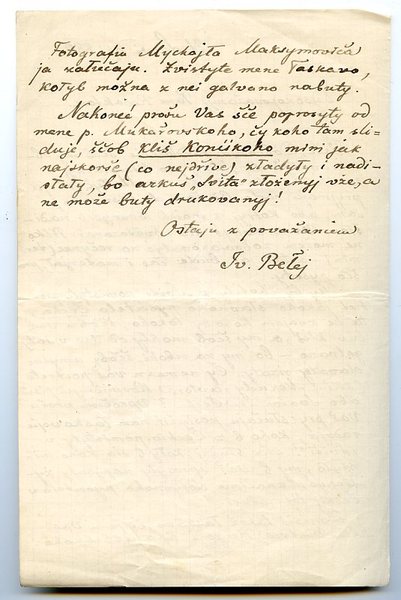 Fotografiu Mychajła Maksymoviča
ja załučaju. Zvistyte mene łaskavo,
kotyb možna z nei galvano nabuty.
Nakoneć prošu Vas šče poprosyty od
mene p. Mukařovskoho, čy koho tam sli-
duje, ščob kliš Koniśkoho mini jak
najskorše (co nejdříve) zładyty i nadi-
słaty, bo arkuš „Svita" złoženyj vže, a
ne može buty drukovanyj!
Ostaju z považaniem
Iv. Bełej